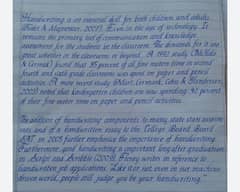 Handwriting is an essential skill for both children and adults
(Feder & Majnemer, 2007). Even in the age of technology, it
remains the primary tool of communication and knowledge
assessment for the students in the classroom. The demands for it are
great, whether in the classroom or beyond. A 1992 study (McHale
& Cermak) found that 85 percent of all fine motor time in second
fourth and sixth grade classrooms was spent on paper and pencil
activities. A more recent study (Marr, Cermak, Cohn & Henderson,
2003) noted that kindergarten children are now spending 42 percent
of their fine motor time on paper and pencil activities.
The addition of handwriting components to many state assessments
and of a handwritten essay to the College Board
SAT in 2005 further emphasize the importance of handwriting.
Furthermore, good handwriting is important long after graduation
in Script and Scribble (2009), Florey writes in reference to
handwritten job applications. Like it or not, even in our machine
driven world, people still judge you by your handwriting."